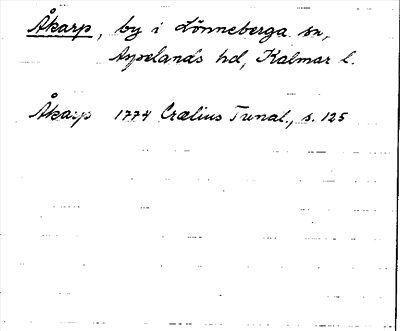 Åkarp, by i Lönneberga sn,
Aspelands hd, Kalmar l.
Åkarp 1774 Crælius Tunal., s. 125